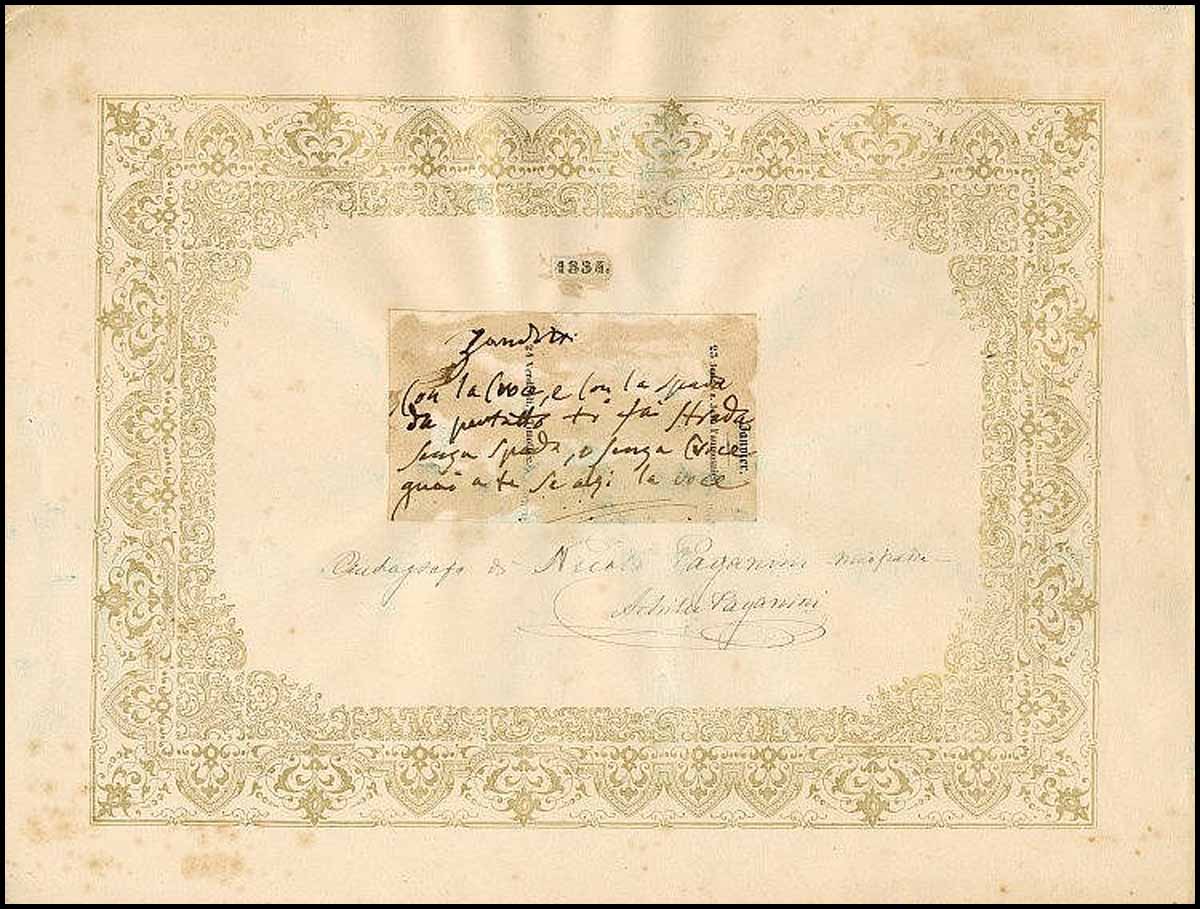 1834.
Con la Croce, e con la spada
da pertutto ti fai strada
senza spada, o senza Croce
guai a te se alzi la voce
Janvier.
24 Vendredi
Autografo di Nicolò Paganini mio padre
Achille Paganini